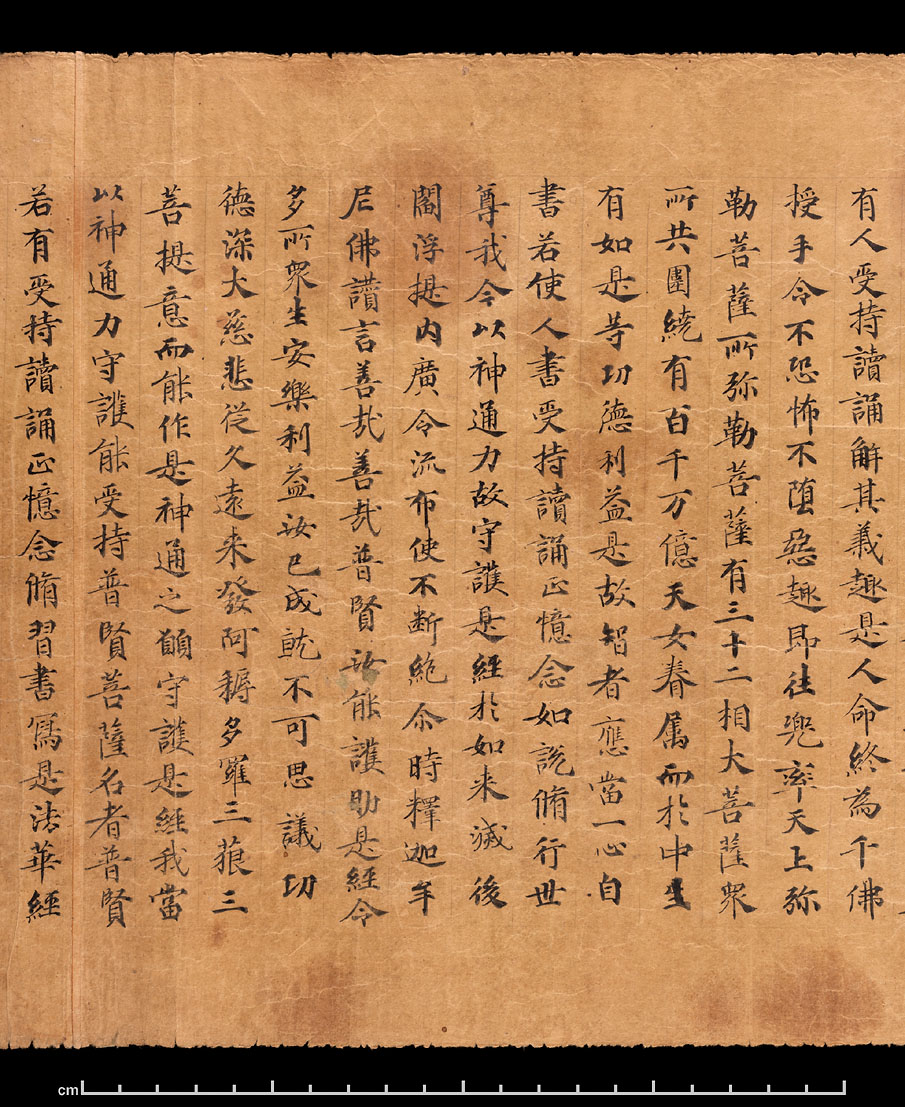 有人受持讀誦解其義趣是人命終為千佛
授手令不恐怖不堕惡趣即往兜率天上弥
勒菩薩所弥勒菩薩有三十二相大菩薩衆
所共圍繞有百千万億天女眷属而於中生
有如是等功德利益是故智者應當一心自
書若使人書受持讀誦正憶念如說脩行世
尊我今以神通力故守護是經於如来滅後
閻浮提内廣令流布使不断絶尒時釋迦牟
尼佛讃言善哉善哉普賢汝能護助是經令
多所衆生安樂利益汝已成就不可思議功
德深大慈悲從久遠来發阿耨多羅三藐三
菩提意而能作是神通之願守護是經我當
以神通力守護能受持普賢菩薩名者普賢
若有受持讀誦正憶念脩習書寫是法華經
cm